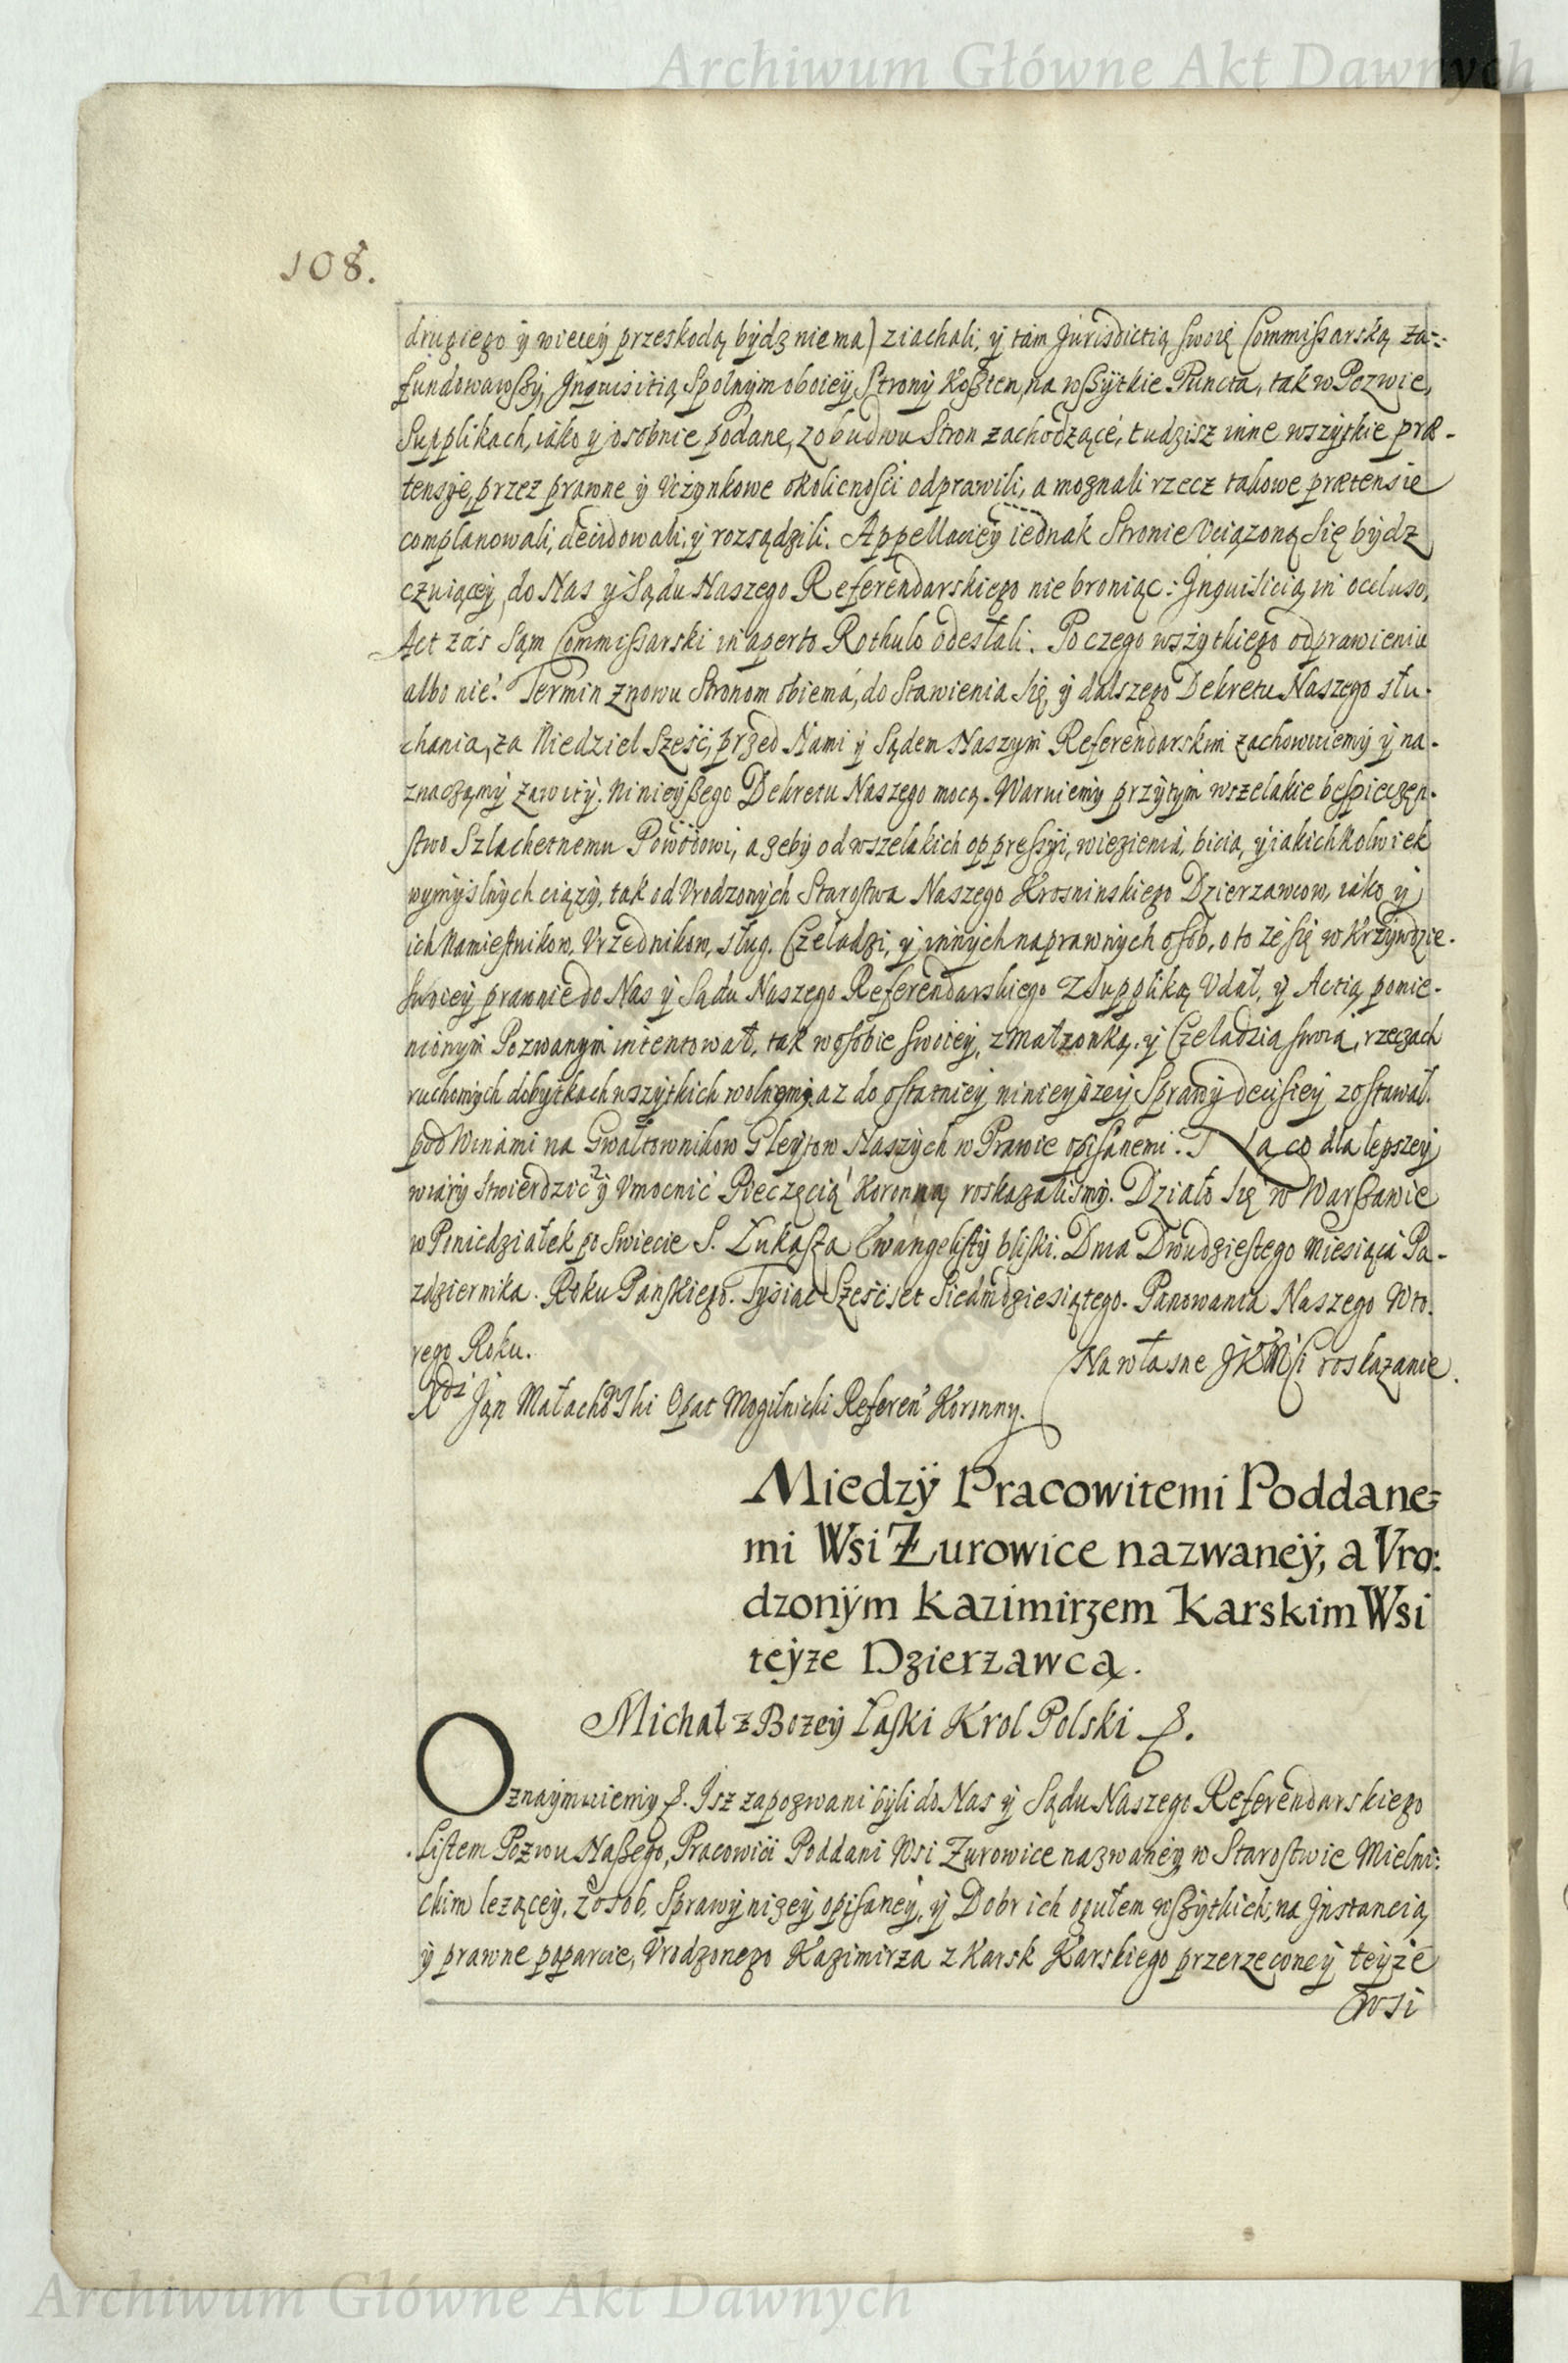 Archiwum Główne Akt Dawnych
108.
drugiego ÿ wiecÿ przeskodą bÿdz niema) ziachali, ÿ tam Jurisdictią swoię Commissarską za=
fundowawszÿ, Inquisitią Spolnÿm oboieÿ Stronÿ Kosztem, na wszÿtkie Puncta, tak w Pozwie,
Supplikach, iako ÿ osobnie podane, z obudwu Stron zachodzące, tudzisz inne wszÿtkie præ-
tensÿe, przez prawne ÿ Vczÿnkowe okolicności odprawili, a moznali rzecz takowe prætensie
complanowali, decidowali, ÿ rozsądzili. Appellacieÿ iednak Stronie Vciązoną Się bÿdz
czuiąceÿ, do Nas ÿ Sądu Naszego Referendarskiego nie broniąc: Inquisicią in occluso,
Act zaś Sąm Commissarski in aperto Rothulo odesłali. Po czego wszÿtkiego odprawieniu
albo nie: Termin znowu Stronom obiema, do Stawienia Się, ÿ dalszego Dekretu Naszego słu-
chania, za Niedziel Sześć, przed Nami ÿ Sądem Naszÿm Referendarskim zachowuiemÿ ÿ na-
znaczamÿ zawitÿ. Ninieÿszego Dekretu Naszego mocą. Waruiemÿ przÿtÿm wszelakie bespieczen-
stwo Szlachetnemu Powodowi, a zebÿ od wszelakich oppressÿi, wiezienia, bicia, ÿ iakichkolwiek
wÿmÿslnÿch ciązÿ, tak od Vrodzonÿch Starostwa Naszego Krosninskiego Dzierzawcow, iako ÿ
ich Namiestnikow, Vrzednikow, sług. Czeladzi, ÿ innÿch naprawnÿch osob, o to ze się w Krzÿwdzie
Swoieÿ prawnie do Nas ÿ Sądu Naszego Referendarskiego z Suppliką Vdał, ÿ Actią pomie-
nionÿm Pozwanÿm intentował, tak w osobie swoieÿ, z małzonką, ÿ Czeladzią swoią, rzeczach
ruchomÿch dobÿtkach wszÿtkich wolnÿmÿ az do ostatnieÿ ninieÿszeÿ Sprawÿ decisieÿ zostawał.
pod Winami na Gwałtownikow Gleÿtow Naszÿch w Prawie opisanemi. Na co dla lepszeÿ
wiarÿ stwierdzić ÿ Vmocnić Pieczęcią Koronną roskazaliśmÿ. Działo Się w Warszawie
w Poniedziałek po Swiecie S. Łukasza Ewangelistÿ bliski. Dnia Dwudziestego Miesiąca Pa-
zdziernika. Roku Panskiego. Tÿsiac Sześćset Siedmdziesiątego. Panowania Naszego Wto-
rego Roku.
Na własne JKMSci roskazanie.
Xdz Jan Małachowski Opat Mogilnicki Referen Koronnÿ.
Miedzÿ Pracowitemi Poddane=
mi Wsi Żurowice nazwaneÿ, a Vro:
dzonÿm Kazimirzem Karskim Wsi
teÿze Dzierzawcą.
Michał z Bozeÿ Łaski Krol Polski &.
Oznaÿmuiemÿ &. Isz zapozwani bÿli do Nas ÿ Sądu Naszego Referendarskiego
Listem Pozwu Naszego, Pracowici Poddani Wsi Zurowice nazwaneÿ w Starostwie Mielni:
ckim leząceÿ, z osob, Sprawÿ nizeÿ opisaneÿ, ÿ Dobr ich ogułem wszÿtkich, na Instancią
ÿ prawne poparcie, Vrodzonego Kazimirza z Karsk Karskiego przerzeconeÿ teÿze
Wsi
Archiwum Główne Akt Dawnych